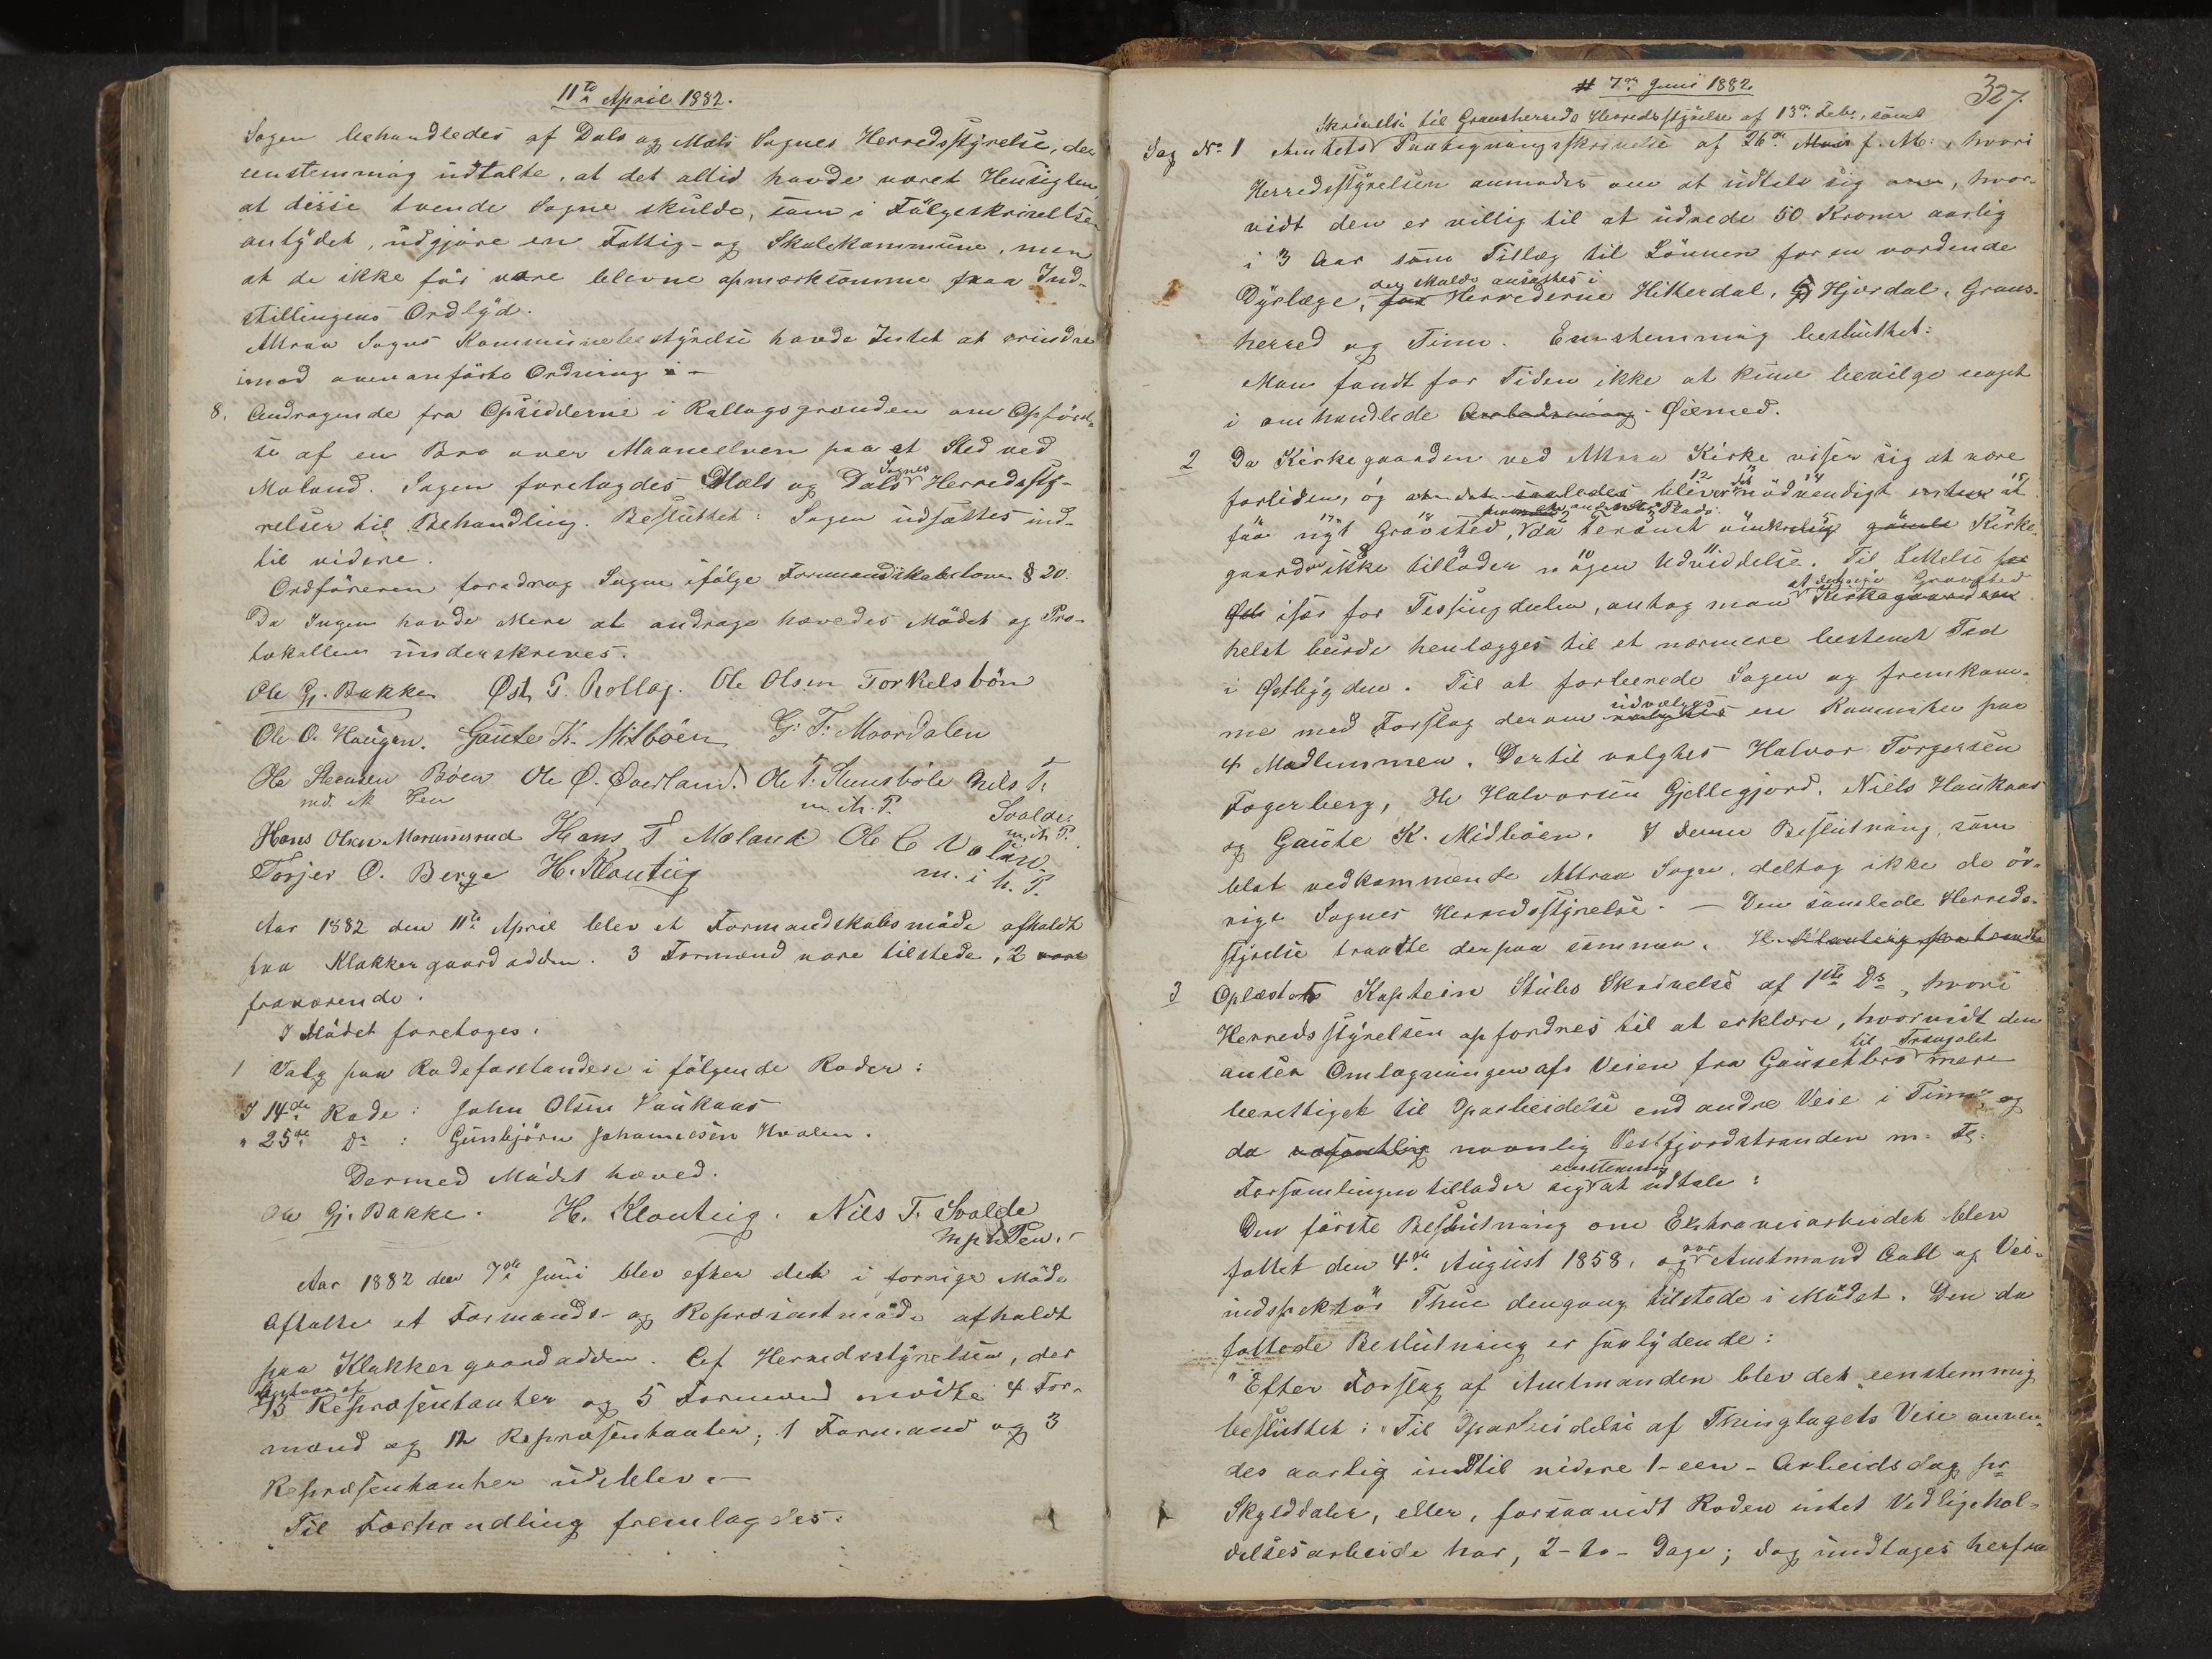 11te April 1882.
Sagen behandledes af Dals og Mæls Sognes Herredsstyrelse, der
eenstemmig udtalte, at det altid havde været Hensigten,
at disse tvende Sogne skulde, som i Følgeskrivelsen
antydet, udgjøre en Fattig- og Skolekommune, men
at de ikke før vare blevne opmærksomme paa Ind-
stillingens Ordlyd.
Attraa Sogns Kommunebestyrelse havde Intet at erindre
imod ovenanførte Ordning. -
8. Andragende fra Opsidderne i Rollagsgrænden om Opførel-
se af en Bro over Maaneelven paa et Sted ved
Moland. Sagen foretagdes Mæls og Dals Sognes Herredssty-
relser til Behandling. Besluttet: Sagen udsættes ind-
til videre.
Ordføreren foredrog Sagen ifølge Formandskabsloven § 20.
Da Ingen havde Mere at andrage hævedes Mødet og Pro-
tokollen underskreves.
Ole Gj. Bakke Øst. T. Rollag. Ole Olsen Torkelsbön
Ole O. Haugen. Gaute K. Mitböen G. T. Moordalen
Ole Steensen Böen Ole Ø. Øverland. Ole T. Steensböle Nils T.
md. i. Pen m. ih. P. Svalde.
Hans Olsen Marumsrud Hans T Moland Ole C Valen m. ih P.
Torjer O. Berge H. Klouteig m. i h. P.
Aar 1882 den 11te April blev et Formandskabsmøde afholdt
paa Klokkergaard adden. 3 Formænd vare tilstede, 2 vare
fraværende.
I Mødet foretoges.
1 Valg paa Rodeforstandere i følgende Roder:
I 14de Rode: John Olsen Haukaas
" 25de Do: Gunbjörn Johannesen Hvalen.
Dermed Mødet hævet.
Ole Gj. Bakke. H. Klouteig. Nils T. Svalde
m p h Pen.
Aar 1882 den 7de Juni blev efter det i forrige Møde
Aftalte et Formands- og Repræsentmøde afholdt
paa Klokkergaard adden. Af Herredsstyrelsen, der
bestaar af
15 Repræsentanter og 5 Formænd mødte 4 For-
mænd og 12 Repræsentanter; 1 Formand og 3
Repræsentanter udeblev. -
Til Forhandling fremlagdes:
7de Juni 1882
327.
Skrivelse til Gransherreds Herredsstyrelse af 13de Febr., samt
Sag No 1 Amtets Paategningsskrivelse af 26de Mai f. M:, hvori
Herredsstyrelsen anmodes om at udtale sig om, hvor-
vidt den er villig til at udrede 50 Kroner aarlig
i 3 Aar som Tillæg til Lönnen for en vordende
der skulde ansættes i
Dyrlæge, for Herrederne Hitterdal, Hjerdal, Grans-
herred og Tinn. Eenstemmig besluttet:
Man fandt for Tiden ikke at kune bevilge noget
i omhandlede Øiemed.
2 Da Kirkegaarden ved Attraa Kirke viser sig at være
forliden, og at det saaledes bliver det nødvendigt at
faa nyt Gravsted, da terænet omkring gamle Kirke-
gaard ikke tillader nogen Udviddelse. Til Lettelse for
især for Tessungdalen, antog man at det nye Gravsted Kirkegaarden
helst burde henlægges til et nærmere bestemt Sted
i Østbygden. Til at forberede Sagen og fremkom-
me med Forslag derom udvælges valgtes en Kommitee paa
4 Medlemmer. Dertil valgtes Halvor Torgersen
Fagerberg, Ole Halvorsen Gjellegjord, Niels Haukaas
og Gaute K. Midböen. I denne Beslutning, som
blot vedkommende Attraa Sogn, deltog ikke de öv-
rige Sognes Herredsstyrelse. - Den samlede Herreds-
styrelse traadte derpaa sammen. H. Klouteig fratraadte
3 Oplæstes Kaptein Stubs Skrivelse af 1ste Ds, hvori
Herredsstyrelsen opfordres til at erklære, hvorvidt den
anser Omlægningen af Veien fra Gausetbro til Traagelet mere
berettiget til Oparbeidelse end andre Veie i Tinn, og
da navnlig Vestfjordstranden m. Fl.
Forsamlingen tillader sig eenstemmig at udtale:
Den første Beslutning om Extraveiarbeidet blev
fattet den 4de August 1858, og var Amtmand Aall og Vei-
indspektør Thue dengang tilstede i Mødet. Den da
fattede Beslutning er saalydende:
"Efter Forslag af Amtmanden blev det eenstemmig
besluttet: "Til Oparbeidelse af Thinglagets Veie anven-
des aarlig indtil videre 1-een- Arbeidsdag pr
Skylddaler, eller, forsaavidt Roden intet Vedligehol-
delsesarbeide har, 2-to- Dage; dog undtages herfra